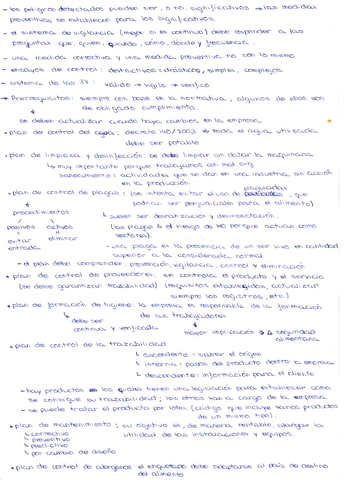 • los peligros detectados pueden ser, o no, significativos → las medidas
preventivas se establecen para los significativos.
• el sistema de vigilancia (mejor si es continuo) debe responder a las
preguntas que, quien, cuando, cómo, dónde y frecuencia.
• una medida correctiva y una medida preventiva no son lo mismo
• ensayos de control: destructivos = drásticos, simples, complejos
• sistema de las 3V:
valido → vigilo → verifico
→ Prerrequisitos: siempre con base en la normativa, algunos de ellos son
de obligado cumplimiento.
se deben actualizar cuando haya cambios en la empresa
• plan de control del agua: decreto 140/2003 → toda el agua utilizada
debe ser potable
• plan de limpieza y desinfección: se debe limpiar sin dañar la maquinaria
↳ muy importante porque trabajamos con mat. org.
saneamiento: actividades que se dan en una industria, sin acción
en la producción.
• plan de control de plagas: (se intenta evitar el uso de plaguicidas, que
podrían ser perjudiciales para el alimento)
procedimientos
↳ suelen ser desratización y desinsectación.
pasivos activos
(las plagas Δ el riesgo de no porque actúan como
vectores).
evitar eliminar
entrada
- una plaga es la presencia de un ser vivo en cantidad
superior a la considerada normal
- el plan debe comprender: prevención, vigilancia, control y eliminación
• plan de control de proveedores: se controla el producto y el servicio
(se debe garantizar trazabilidad) (requisitos establecidos, actualizar
siempre los registros, etc.)
• plan de formación de higiene: la empresa es responsable de la formación
de sus trabajadores
↳ debe ser
continua y verificada
mayor implicación → Δ seguridad
alimentaria
• plan de control de la trazabilidad
↳ ascendente: saber el origen
↳ interna: pasos del producto dentro la empresa
↳ descendente: información para el cliente
- hay productos en los cuales tienen una legislación para establecer como
se consigue su trazabilidad; los otros van a cargo de la empresa
- se puede tratar el producto por lotes (código que incluye varios productos
de un mismo tipo).
• plan de mantenimiento: su objetivo es, de manera rentable, alargar la
utilidad de las instalaciones y equipos.
↳ correctivo
↳ preventivo
↳ predictivo
↳ por cambio de diseño
• plan de control de alergenos: el etiquetado debe adaptarse al país de destino
del alimento